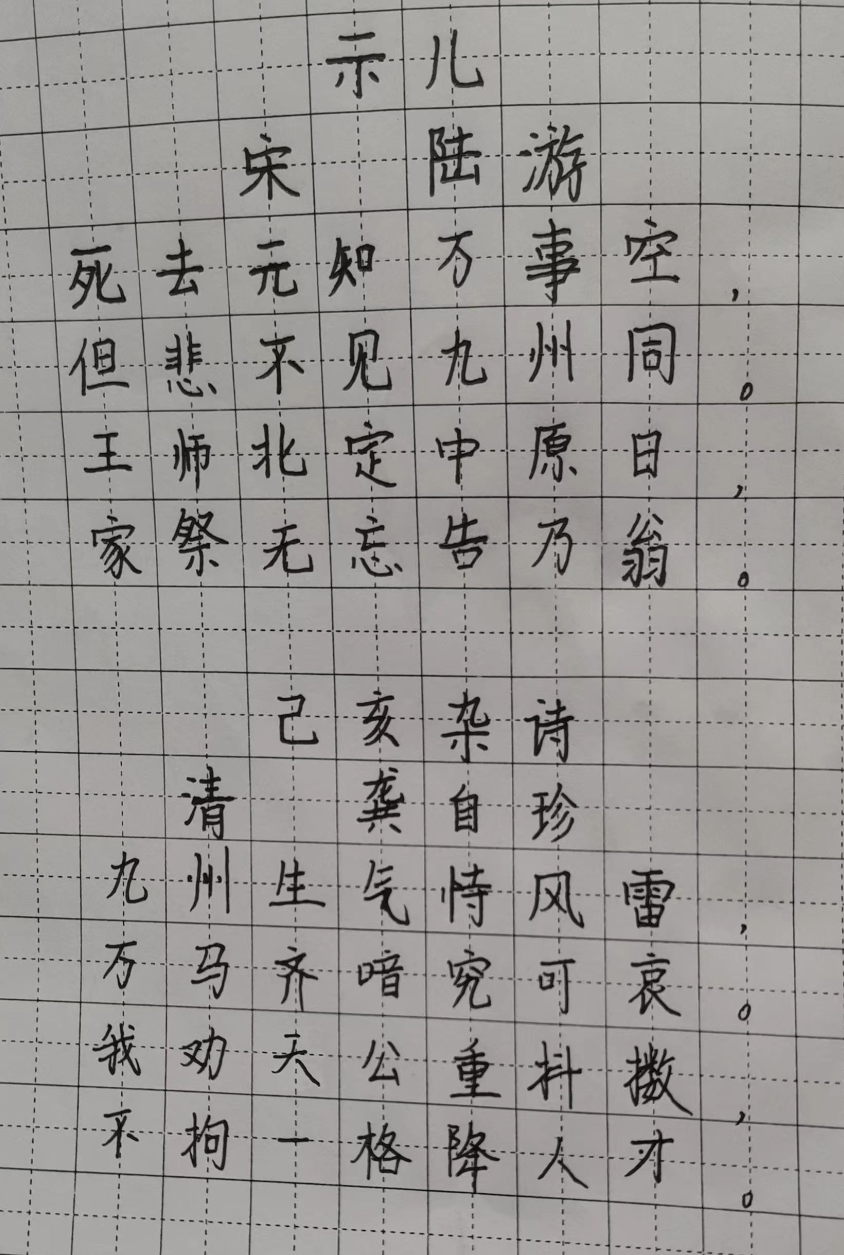 示儿
宋 陆游
死去元知万事空，
但悲不见九州同。
王师北定中原日，
家祭无忘告乃翁。
己亥杂诗
清 龚自珍
九州生气恃风雷，
万马齐喑究可哀。
我劝天公重抖擞，
不拘一格降人才。